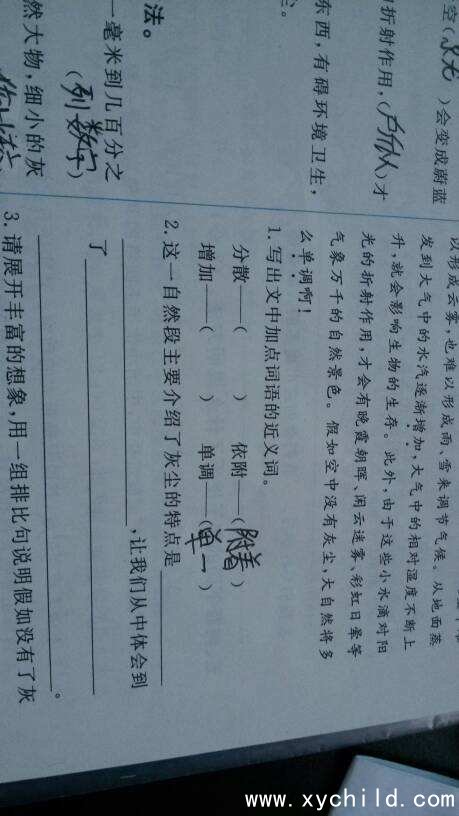 空(   )会变成蔚蓝
折射作用，(   )才
东西，有碍环境卫生，
法。
一毫米到几百分之
(列数字)
然大物，细小的灰
以形成云雾，也难以形成雨、雪来调节气候。从地面蒸
发到大气中的水汽逐渐增加，大气中的相对湿度不断上
升，就会影响生物的生存。此外，由于这些小水滴对阳
光的折射作用，才会有晚霞朝晖、闲云迷雾、彩虹日晕等
气象万千的自然景色。假如空中没有灰尘，大自然将多
么单调啊！
1. 写出文中加点词语的近义词。
分散——(   ) 依附——(附着)
增加——(   ) 单调——(单一)
2. 这一自然段主要介绍了灰尘的特点是
，让我们从中体会到
了
。
3. 请展开丰富的想象，用一组排比句说明假如没有了灰
www.xychild.com